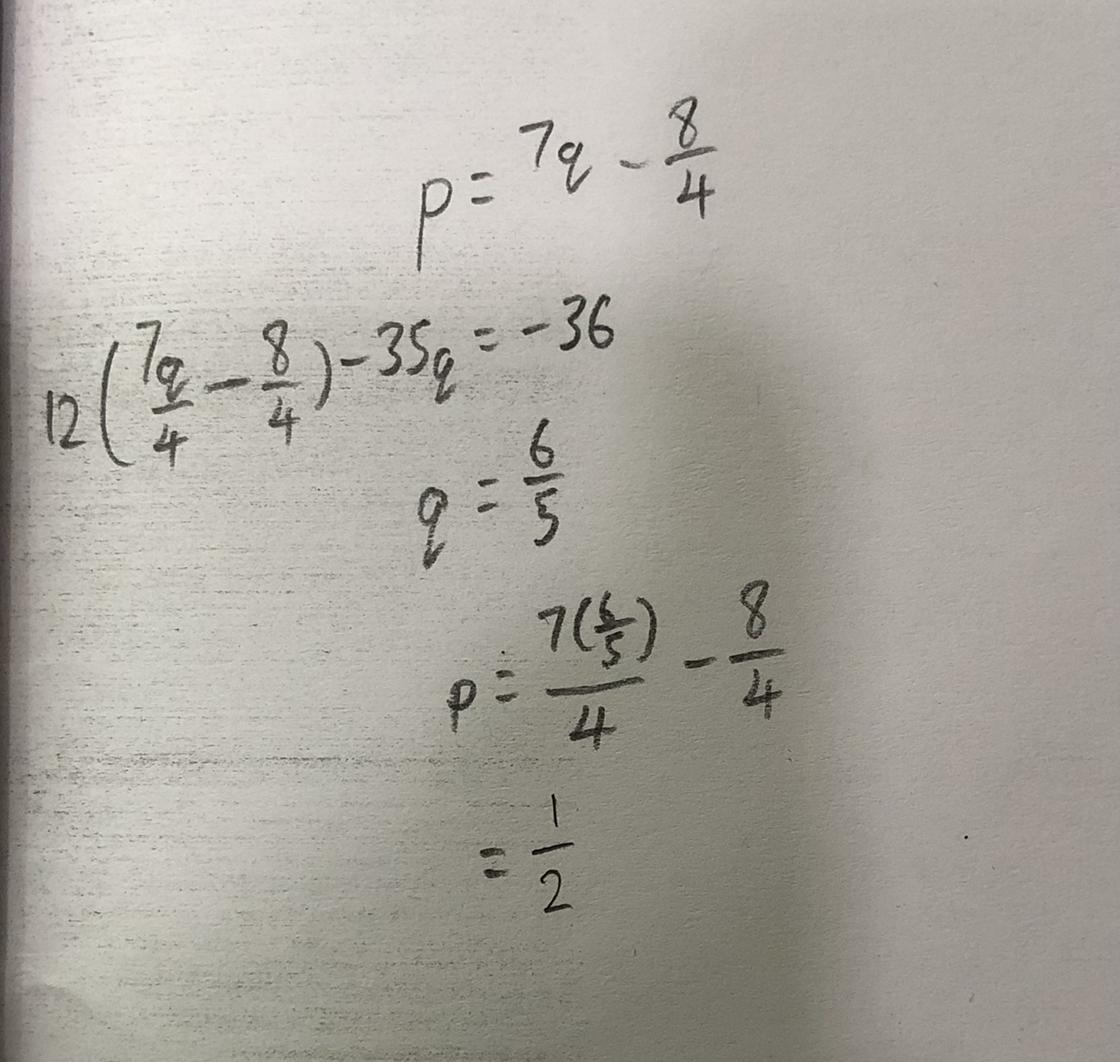 p = 7q - 8/4
12(7q/4 - 8/4) - 35q = -36
q = 6/5
p = 7(6/5)/4 - 8/4
= 1/2